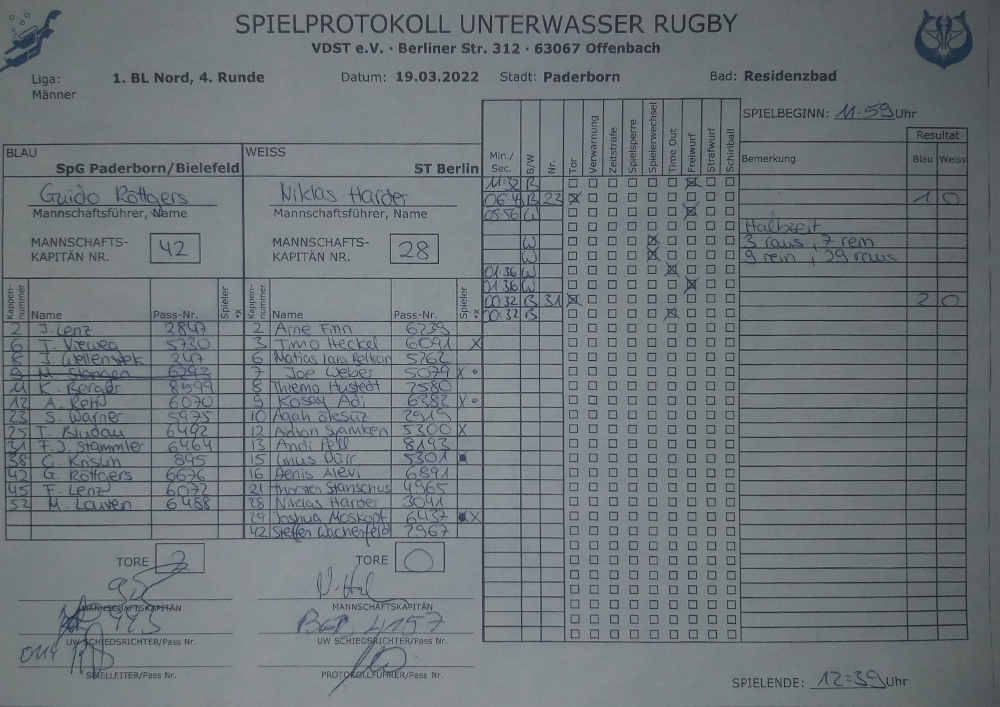 SPIELPROTOKOLL UNTERWASSER RUGBY
VDST e.V. · Berliner Str. 312 · 63067 Offenbach
Liga: 1. BL Nord, 4. Runde Datum: 19.03.2022 Stadt: Paderborn Bad: Residenzbad
Männer
SPIELBEGINN: 11:59 Uhr
Resultat
Min./Sec. B/W Nr. Tor Verwarnung Zeitstrafe Spielsperre Spielerwechsel Time Out Freiwurf Strafwurf Schiriball Bemerkung Blau Weiss
BLAU
SpG Paderborn/Bielefeld
WEISS
ST Berlin
Guido Röttgers
Mannschaftsführer, Name
Niklas Harder
Mannschaftsführer, Name
MANNSCHAFTS-
KAPITÄN NR. 42
MANNSCHAFTS-
KAPITÄN NR. 28
11:32 B
B 23 1 0
05:56 W
Halbzeit
W 3 raus, 7 rein
W 9 rein, 29 raus
01:36 W
01:36 W
00:32 B 31 2 0
00:32 B
Kappen-nummer Name Pass-Nr. Spieler
2 J. Lenz 2847
6 T. Vieweg 5730
8 J. 247
9 M. Stangen 6293
11 K. Berger 8599
12 A. 6070
23 S. Warner 5975
25 T. Bludau 6492
31 F.J. Stammler 6464
38 C. 895
42 G. Röttgers 6676
45 F. Lenz 6072
52 M. Lauven 6488
Kappen-nummer Name Pass-Nr. Spieler
2 Arne Finn 6239
3 Timo Heckel 6091 X
6 Matias 5262
7 Joe Weber 5079 X
8 Thiemo Hustedt 2580
9 Kosay Adi 6382
10 Agah Öksüz 2919
12 Adrian 5300 X
13 Andi 8193
15 Linus Dürr 5301
16 Denis Alevi 6891
21 Thorsten Stanschus 4965
28 Niklas Harder 3041
29 Joshua Moskopf 6437 X
42 Steffen Wachenfeld 2967
TORE 2
TORE 0
MANNSCHAFTSKAPITÄN
MANNSCHAFTSKAPITÄN
UW SCHIEDSRICHTER/Pass Nr.
4157
UW SCHIEDSRICHTER/Pass Nr.
SPIELLEITER/Pass Nr.
PROTOKOLLFÜHRER/Pass Nr.
SPIELENDE: 12:39 Uhr